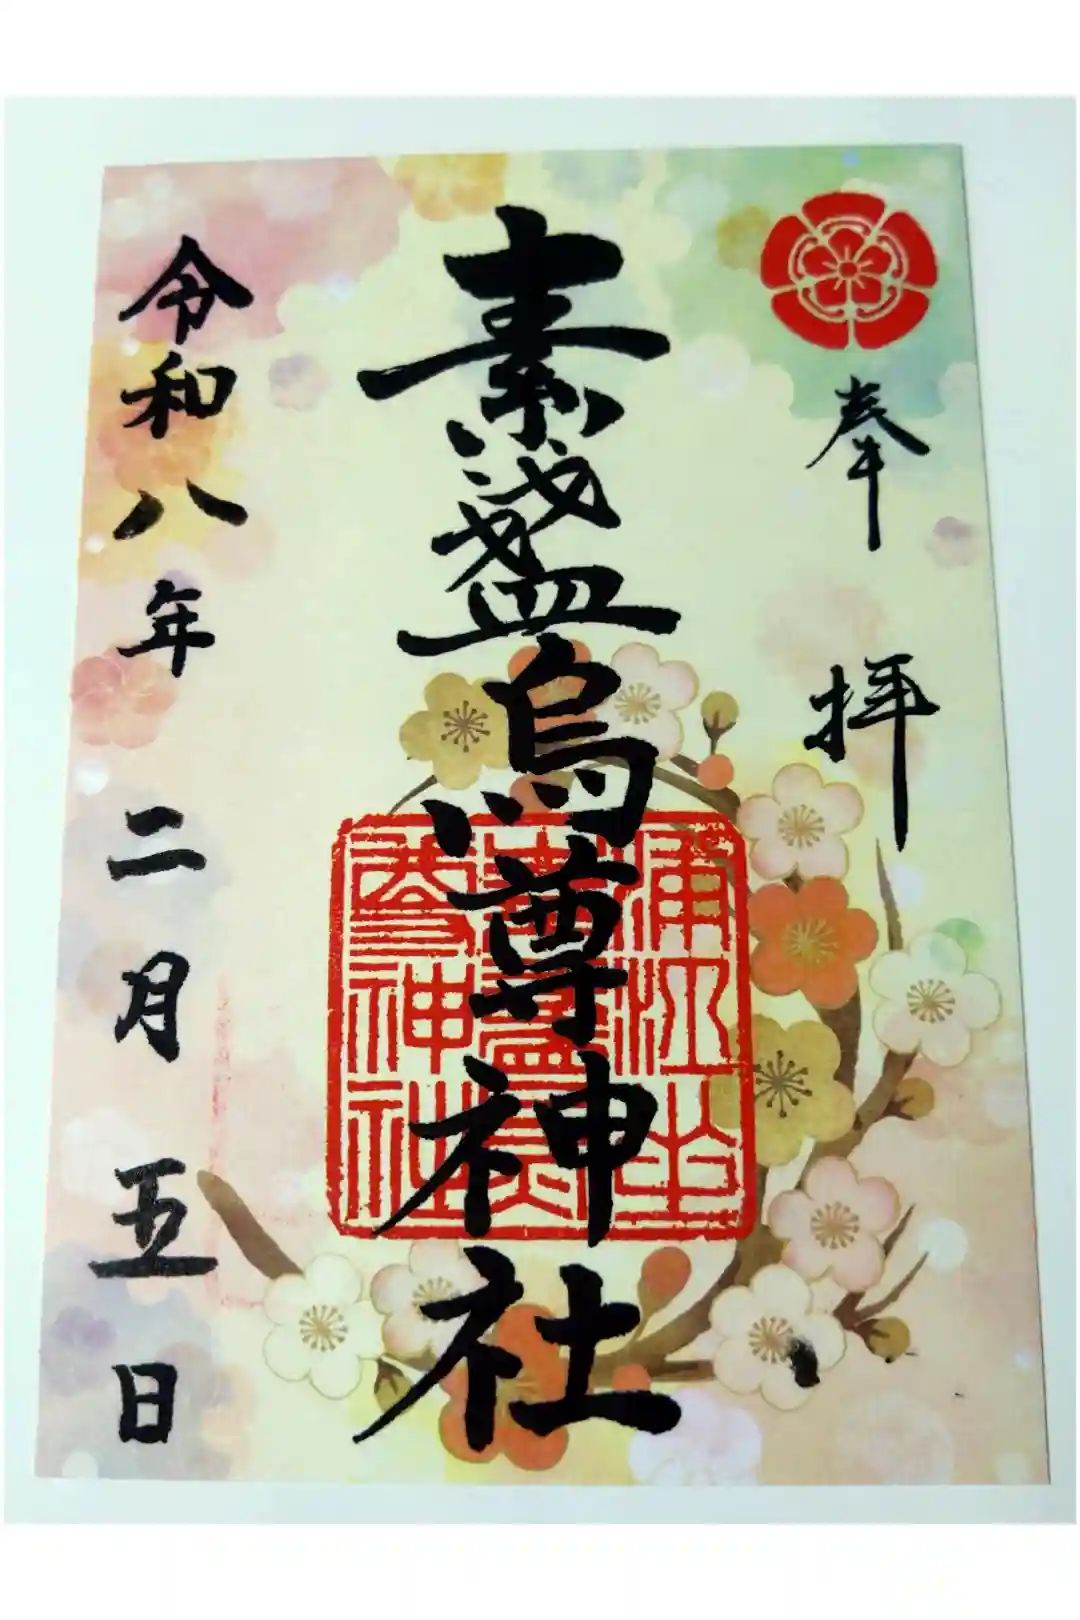 奉拝
素盞烏尊神社
浦江坐
素盞烏
尊神社
令和八年二月五日